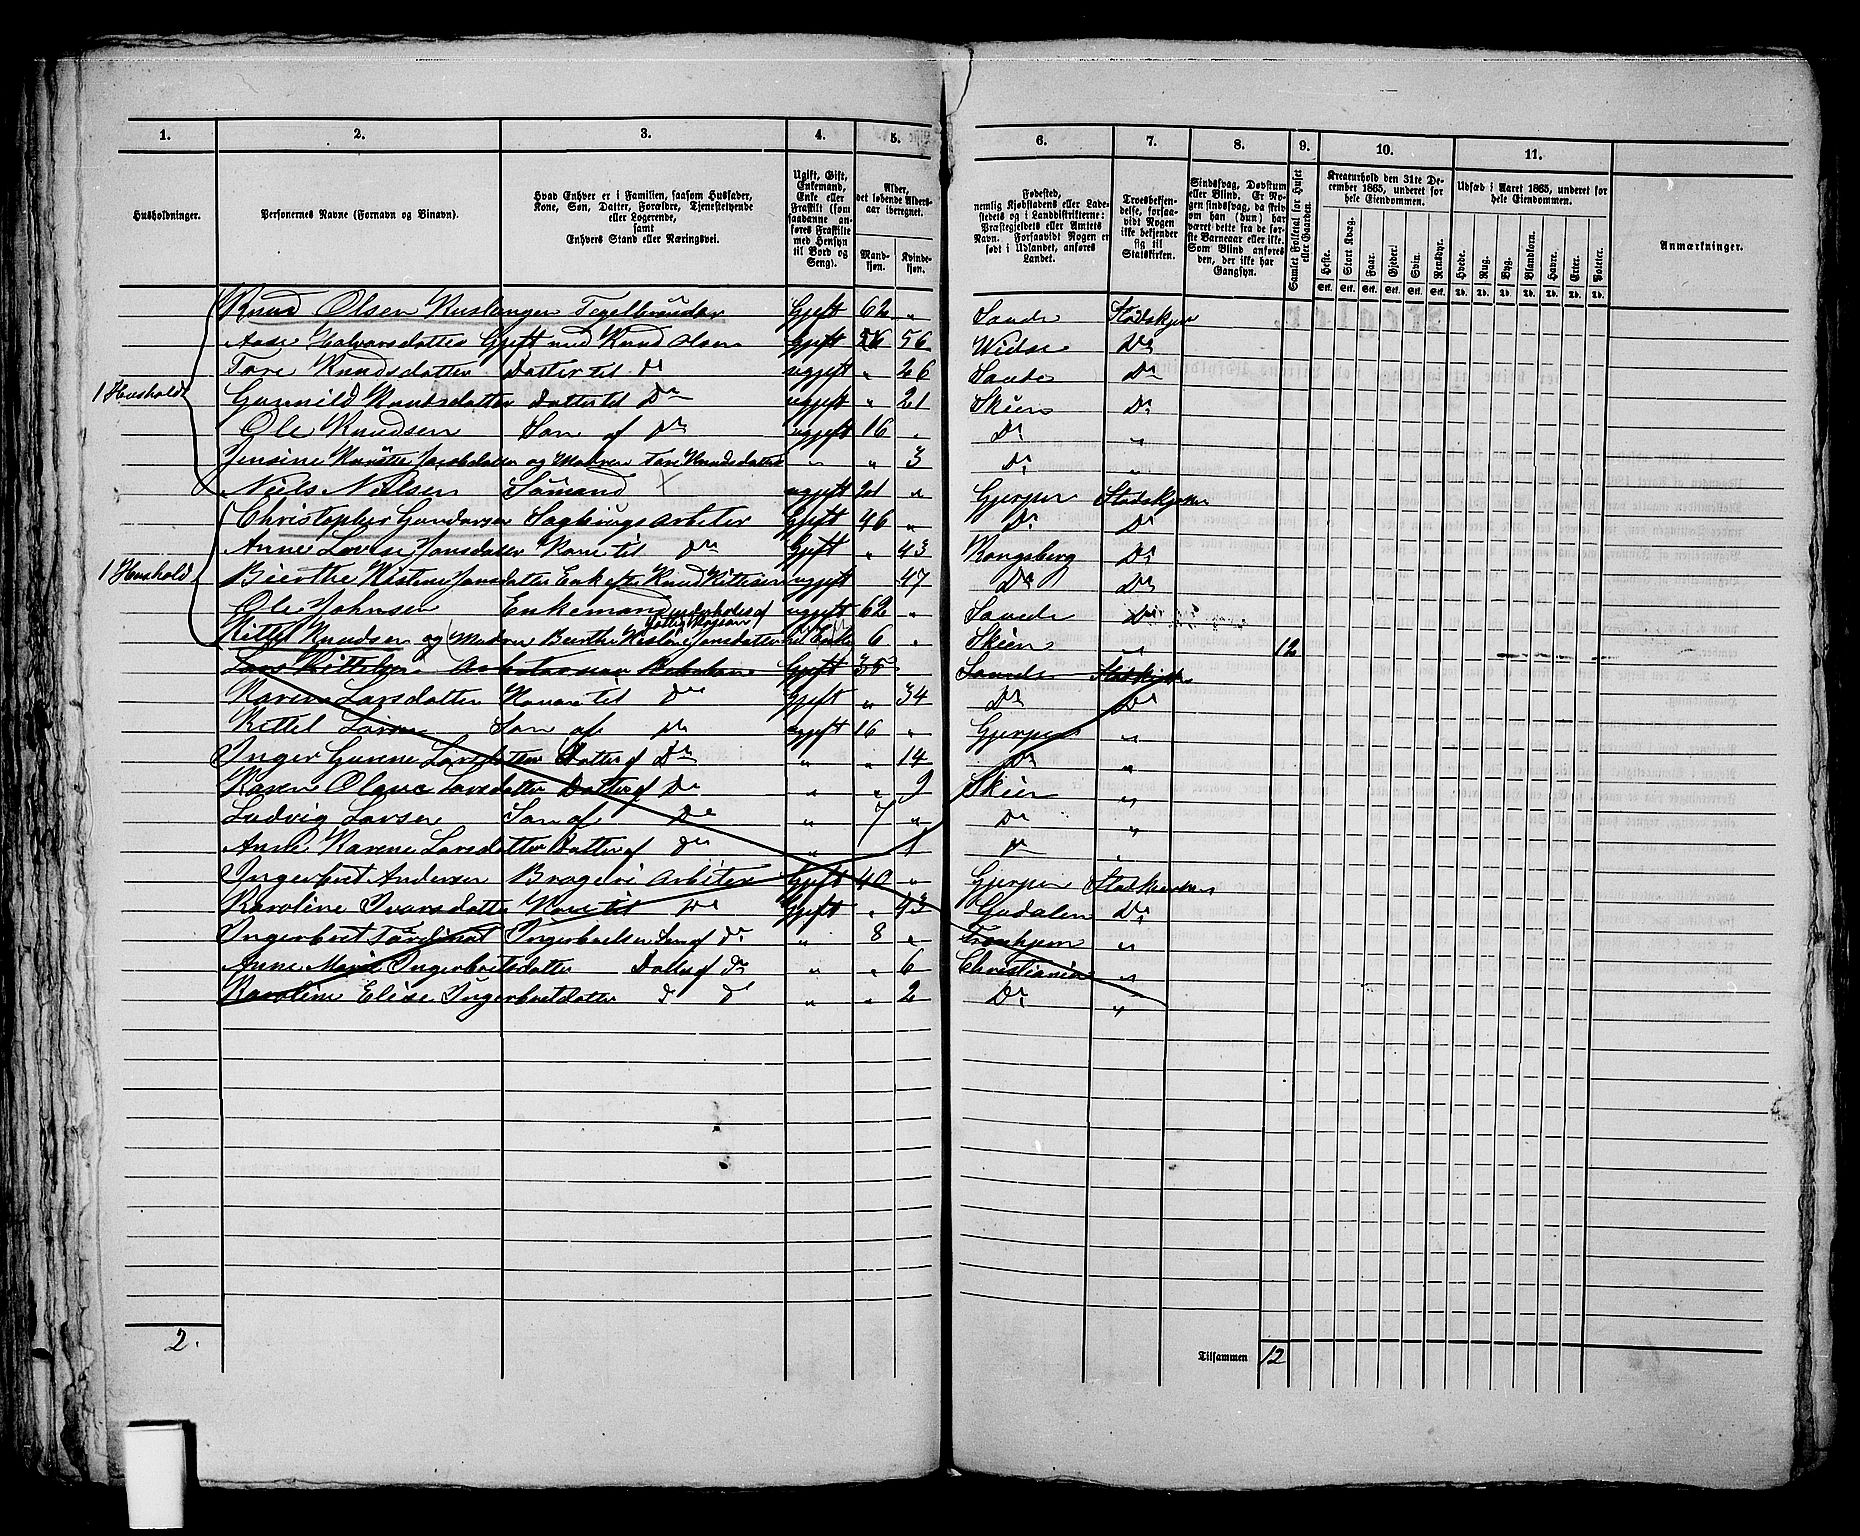 1. 2. 3. 4. 5. 6. 7. 8. 9. 10. 11.
Husholdninger.
Personernes Navne (Fornavn og Binavn).
Hvad Enhver er i Familien, saasom Husfader, Kone, Søn, Datter, Forældre, Tjenestetyende eller Logerende, samt Enhvers Stand eller Næringsvei.
Ugift, Gift, Enkemand, Enke eller Fraskilt (som saadanne anføres Fraskilte med Hensyn til Bord og Seng).
Alder, det løbende Alders-aar iberegnet.
Mand-kjøn. Kvinde-kjøn.
Fødested, nemlig Kjøbstadens eller Ladestedets og i Landdistrikterne: Præstegjeldets eller Amtets Navn. Forsaavidt Nogen er født i Udlandet, anføres Landet.
Troesbekjendelse, forsaavidt Nogen ikke bekjender sig til Statskirken.
Sindssvag, Døvstum eller Blind. Er Nogen sindssvag, da skrives om han (hun) har været dette fra de første Barneaar eller ikke. Som Blind anføres den, der ikke har Gangsyn.
Samlet Folketal for Huset eller Gaarden.
Kreaturhold den 31te December 1865, underet for hele Eiendommen.
Heste. Stort Kvæg. Faar. Gjeder. Svin. Rensdyr.
Udsæd i Aaret 1865, underet for hele Eiendommen.
Hvede. Rug. Byg. Blandkorn. Havre. Erter. Poteter.
Anmærkninger.
Knud Olsen Tegelbrænder Gjeft 62 „ Sande Stadskjer
Aase Halvorsdatter Gjeft med Knud Olsen Gjeft 56 Do
Tore Knudsdatter Datter til Do ugjeft „ 26 Sande Do
1 Hushold Gunnild Knudsdatter Datter til Do ugjeft „ 21 Skien Do
Ole Knudsen Søn af Do ugjeft 16 „ Do „
Jensine Jacobdatter og Moderen Tore Knudsdatter „ „ 3 Do „
Niels Nielsen Sømand × ugjeft 21 „ Gjerpen Stadskjerken
Christopher Gundersen Sagbrugs Arbeter Gjeft 46 „ Do Do
Anne Lovise Jansdatter Kone til Do Gjeft „ 43 Kongsberg Do
1 Hushold Bierthe Kistine Jansdatter Enk efter Knud Kittilsen ugjeft „ 47 Do Do
Ole Johnsen Enkemand underholdes af ugjeft 62 „ Sande Do
Kittel Knudsen og Modren Bierthe Kistine Jansdatter 6 „ Skien „ 12
Lars Kittilsen Gjeft 35 Sande Stadskjerken
Karen Larsdatter Kone til Do Gjeft „ 34 Do Do
Kittel Larsen Søn af Do ugjeft 16 „ Gjerpen „
Inger Gurine Larsdatter Datter af Do „ „ 14 Do „
Karen Olave Larsdatter Datter af Do „ „ 9 Skien „
Ludvig Larsen Søn af Do „ 7 „ Do „
Anne Karene Larsdatter Datter af Do „ 1 Do „
Ingerbret Andersen Brogeri Arbiter Gjeft 40 „ Gjerpen Stadskjerken
Karoline Ivarsdatter Kone til Do Gjeft „ 43 Gudalen Do
Ingerbret Ingerbretsen Søn af Do „ 8 „ „
Anne Marie Ingerbretsdatter Datter af Do „ „ 6 Christiania „
Karoline Elise Ingerbretdatter d d „ „ 2 Do „
2. Tilsammen 12